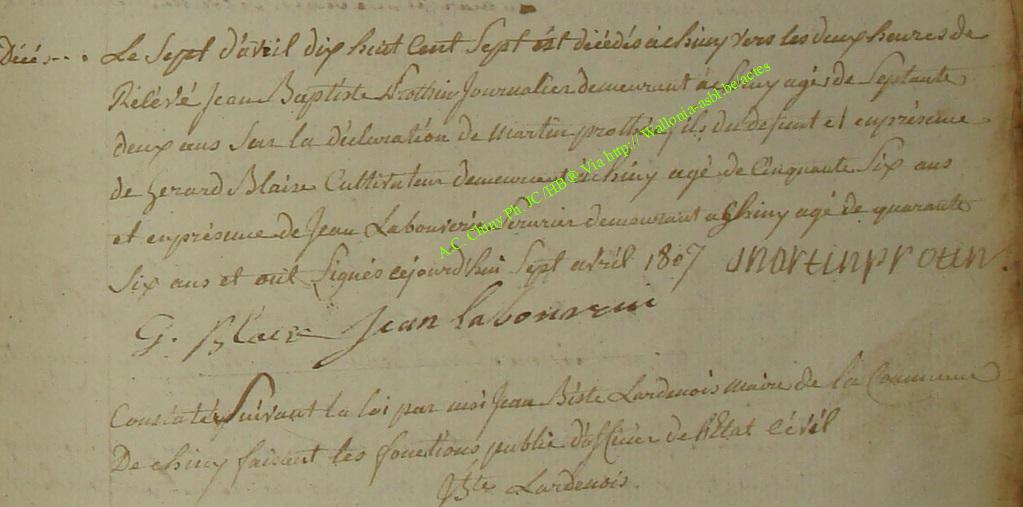 Décés... Le Sept d'avril dix huit Cent Sept est décédés à chiny vers les deux heures de
Rélévé Jean Baptiste Prothin Journalier demeurant à Chiny agé de Septante
deux ans Sur la déclaration de Martin prothin fils du defunt et en présence
de Gerard Blaise Cultivateur demeurant à chiny agé de Cinquante Six ans
et en présence de Jean Labouverie Serurier demeurant a Chiny agé de quarante
Six ans et ont Signés cejourd'hui Sept avril 1807 martin protin
G. Blaise Jean labouverie
Constaté Suivant la loi par moi Jean Bste Lardenois maire de la Commune
De chiny faisant les fonctions public d'officier de l'Etat Civil
Jbte Lardenois.
A.C. Chiny Ph. JC /HB® Via http:// Wallonia-asbl.be/actes